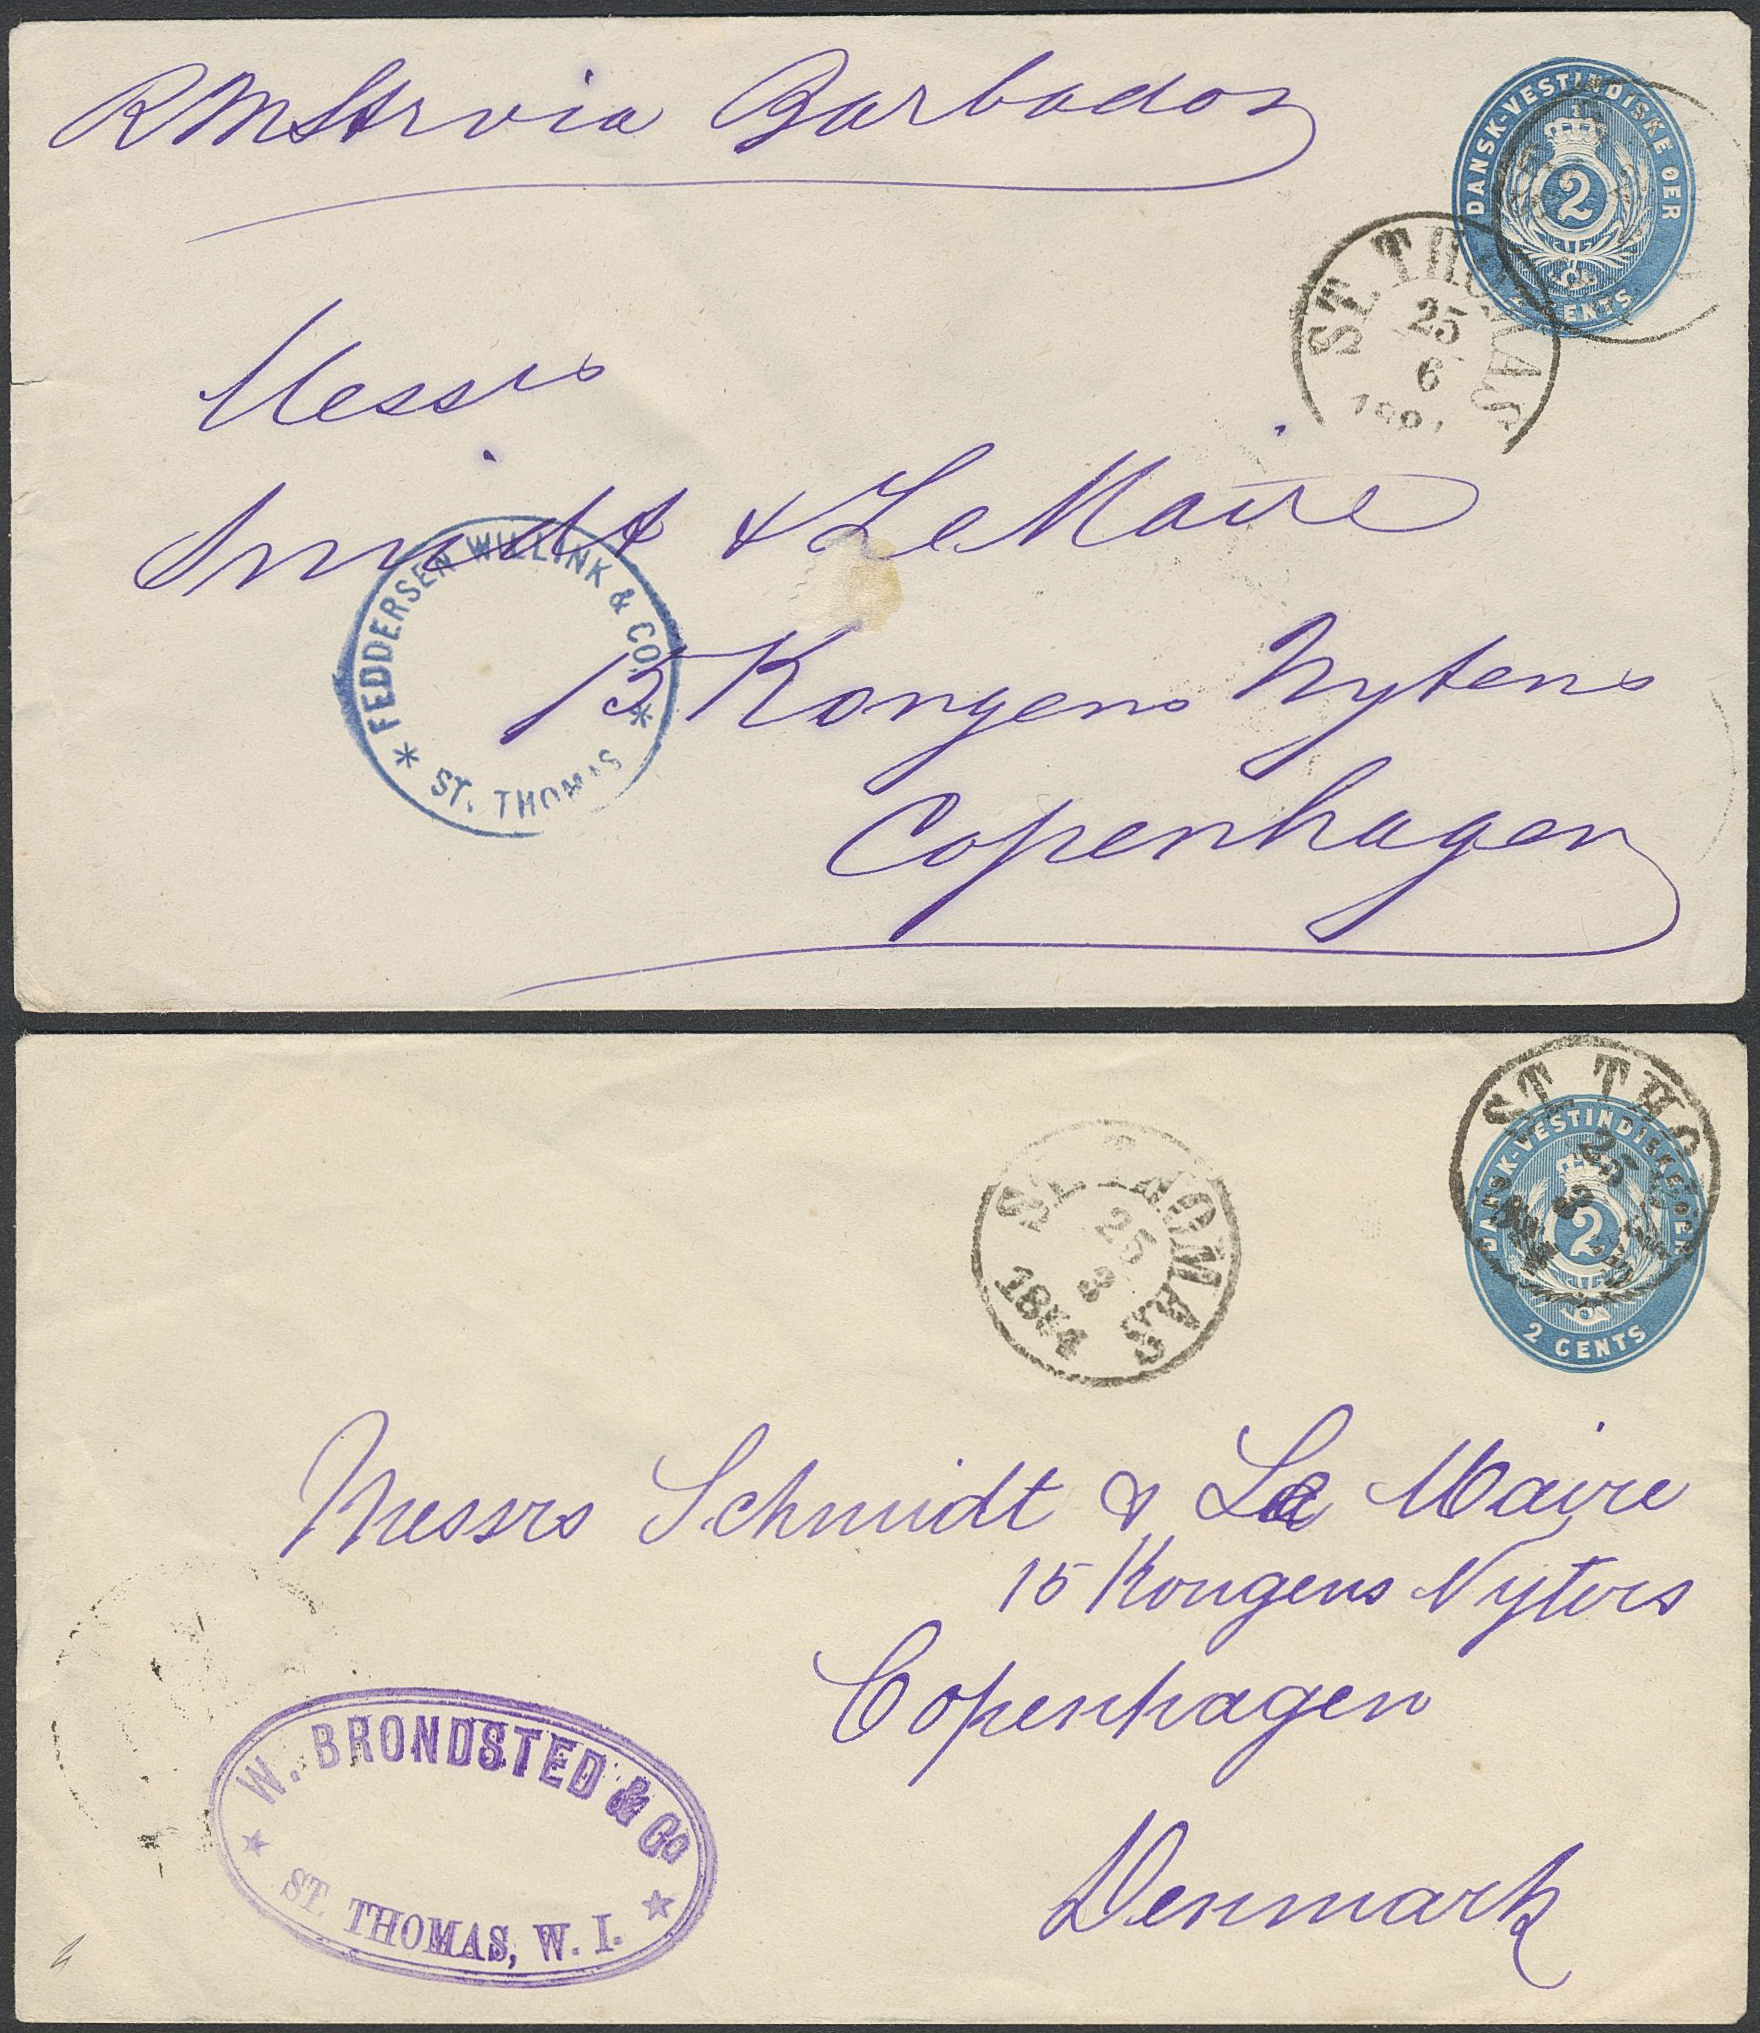 RMStr via Barbados
DANSK-VESTINDISKE ØER
2
2 CENTS
ST. THOMAS
25
6
Messrs
Smidt & Le Maire
FEDDERSEN WILLINK & CO.
* ST. THOMAS *
15 Kongens Nytens
Copenhagen
ST. THOMAS
25
8
1884
ST. THO
25
8
DANSK-VESTINDISKE ØER
2
2 CENTS
Messrs Schmidt & Le Maire
15 Kongens Nytors
Copenhagen
Denmark
W. BRONDSTED & Co
ST. THOMAS, W. I.